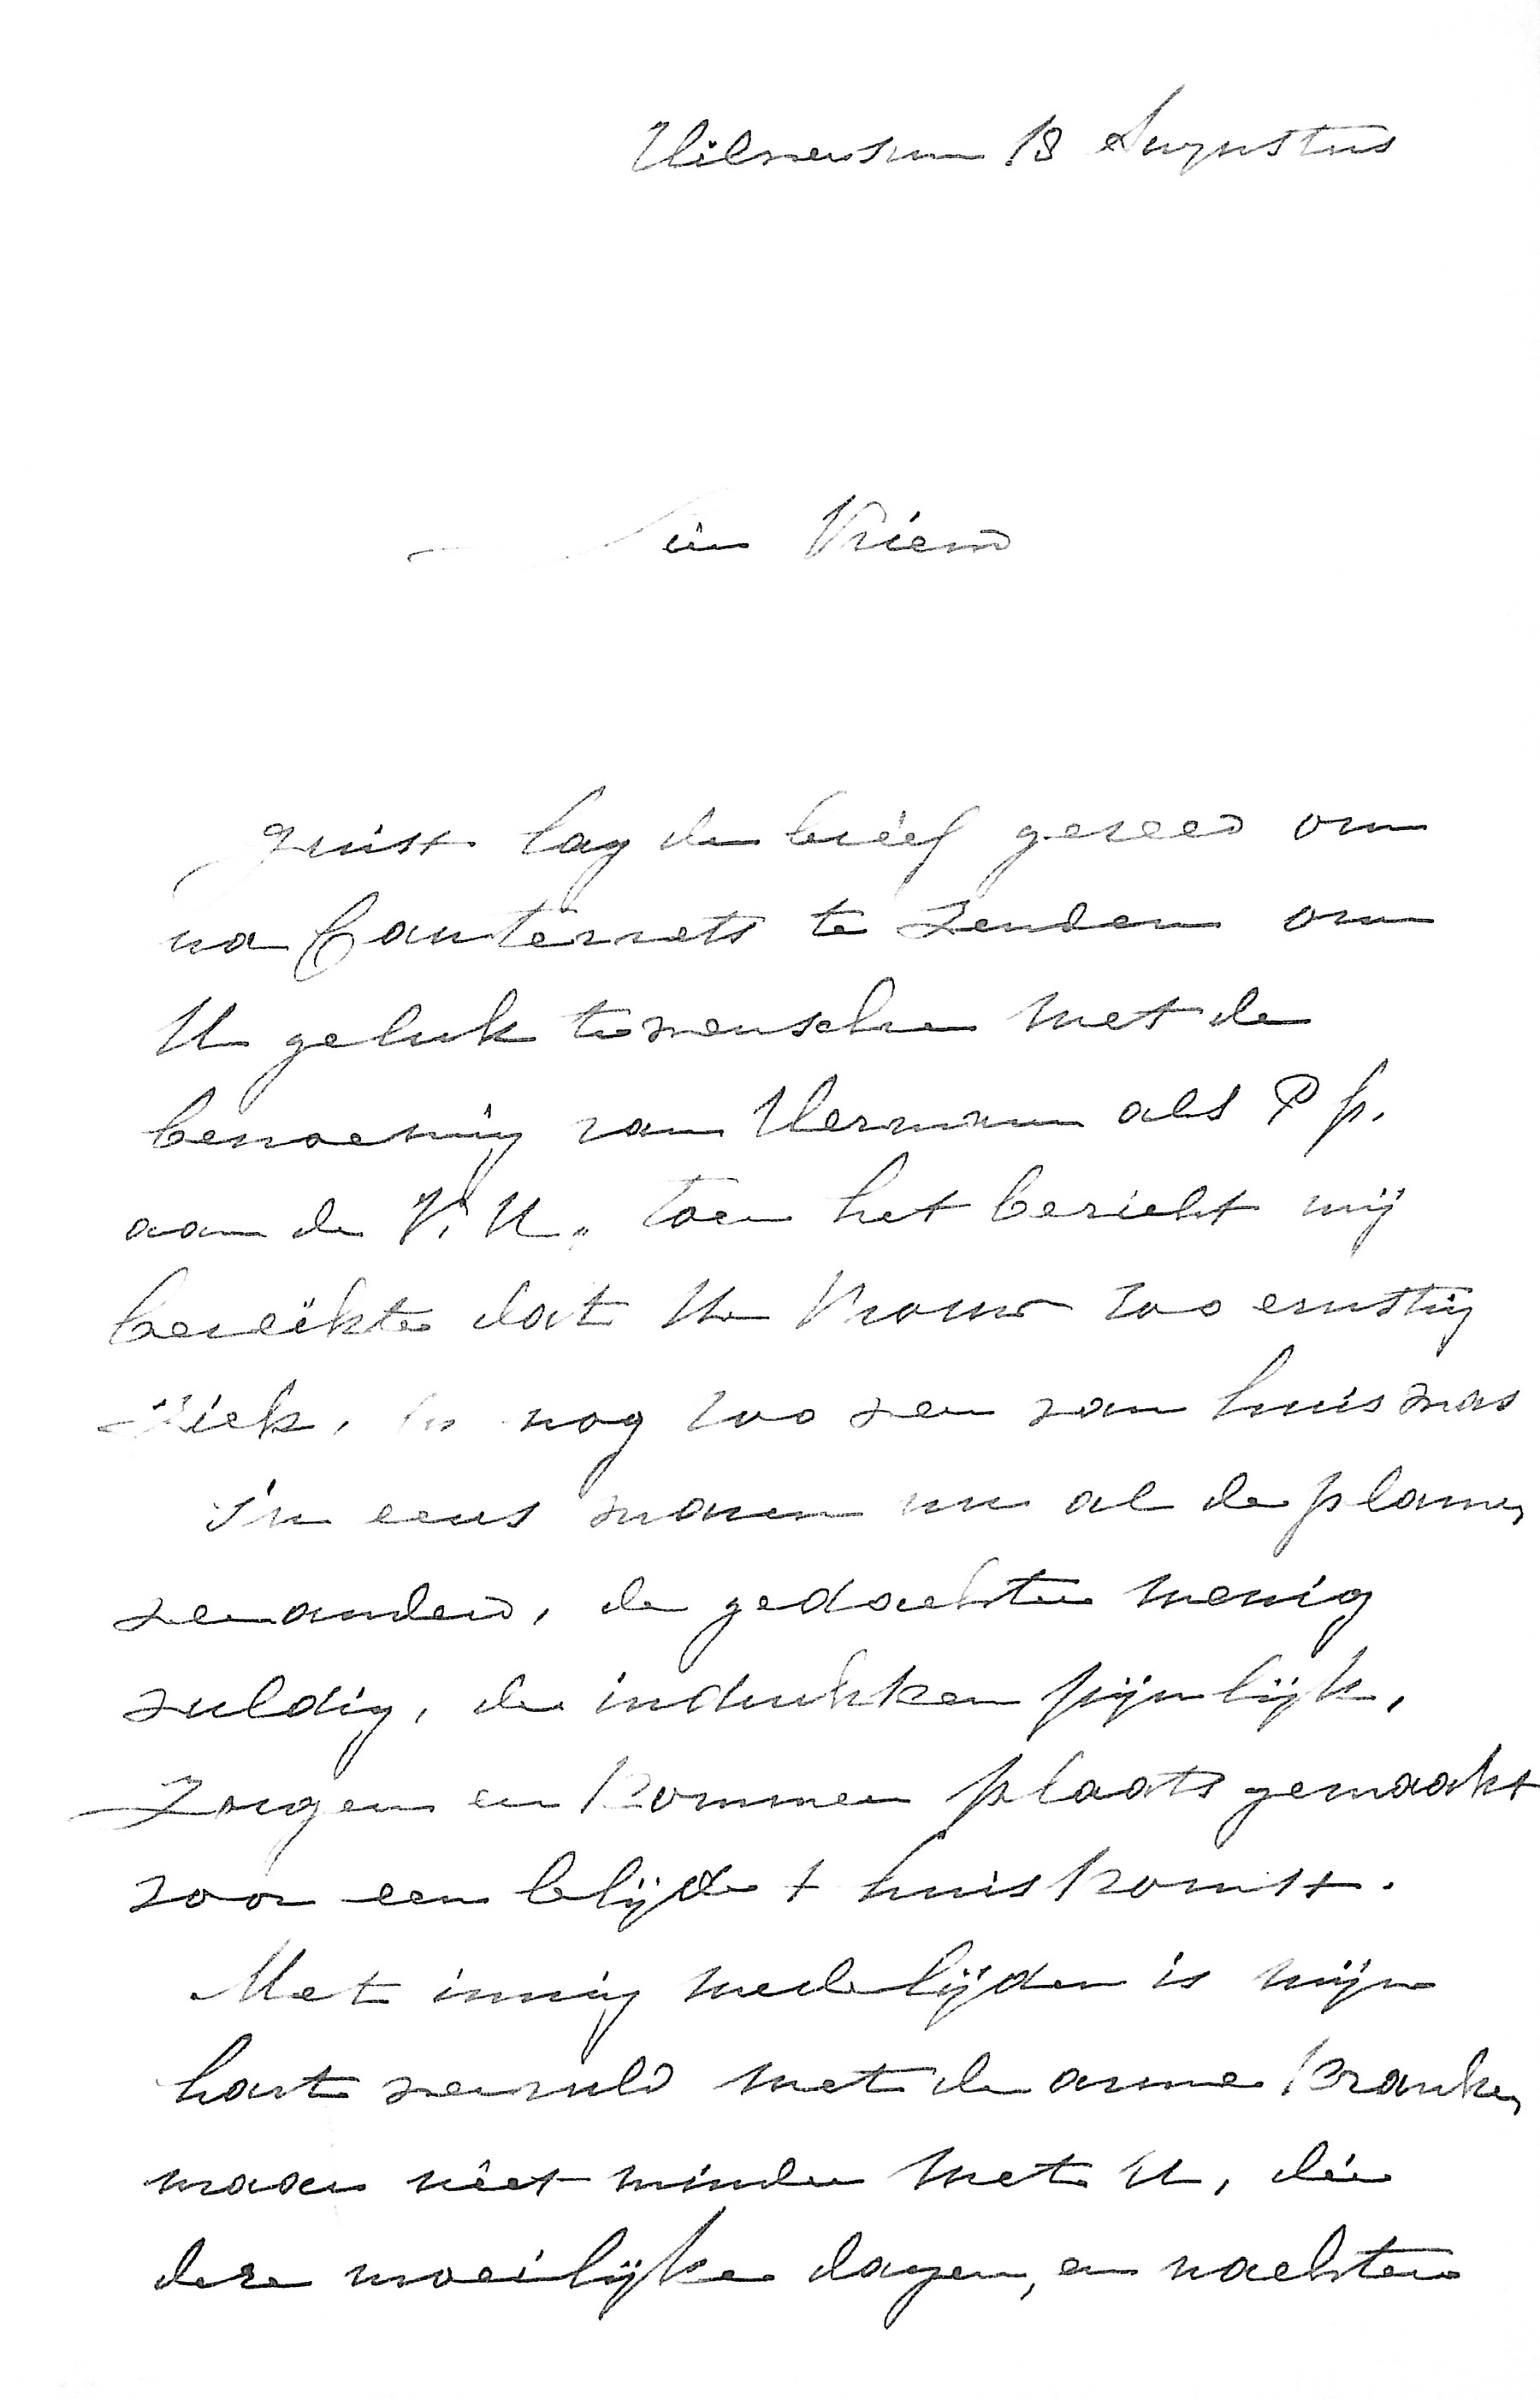 Hilversum 18 Augustus
Vriend
Juist lag de brief gereed om
na Cauterets te zenden om
U geluk te wenschen met de
benoeming van Herman als P p.
aan de V. U., toen het bericht mij
bereikte dat Uw Vrouw zoo ernstig
ziek, en nog zoo ver van huis was
In eens waren nu al de plannen
veranderd, de gedachten menig
vuldig, de indrukken pijnlijk,
Zorgen en kommer plaats gemaakt
voor een blijde t huiskomst.
Met innig medelijden is mijn
hart vervuld met de arme Kranke,
maar niet minder met U, die
deze moeilijke dagen, en nachten